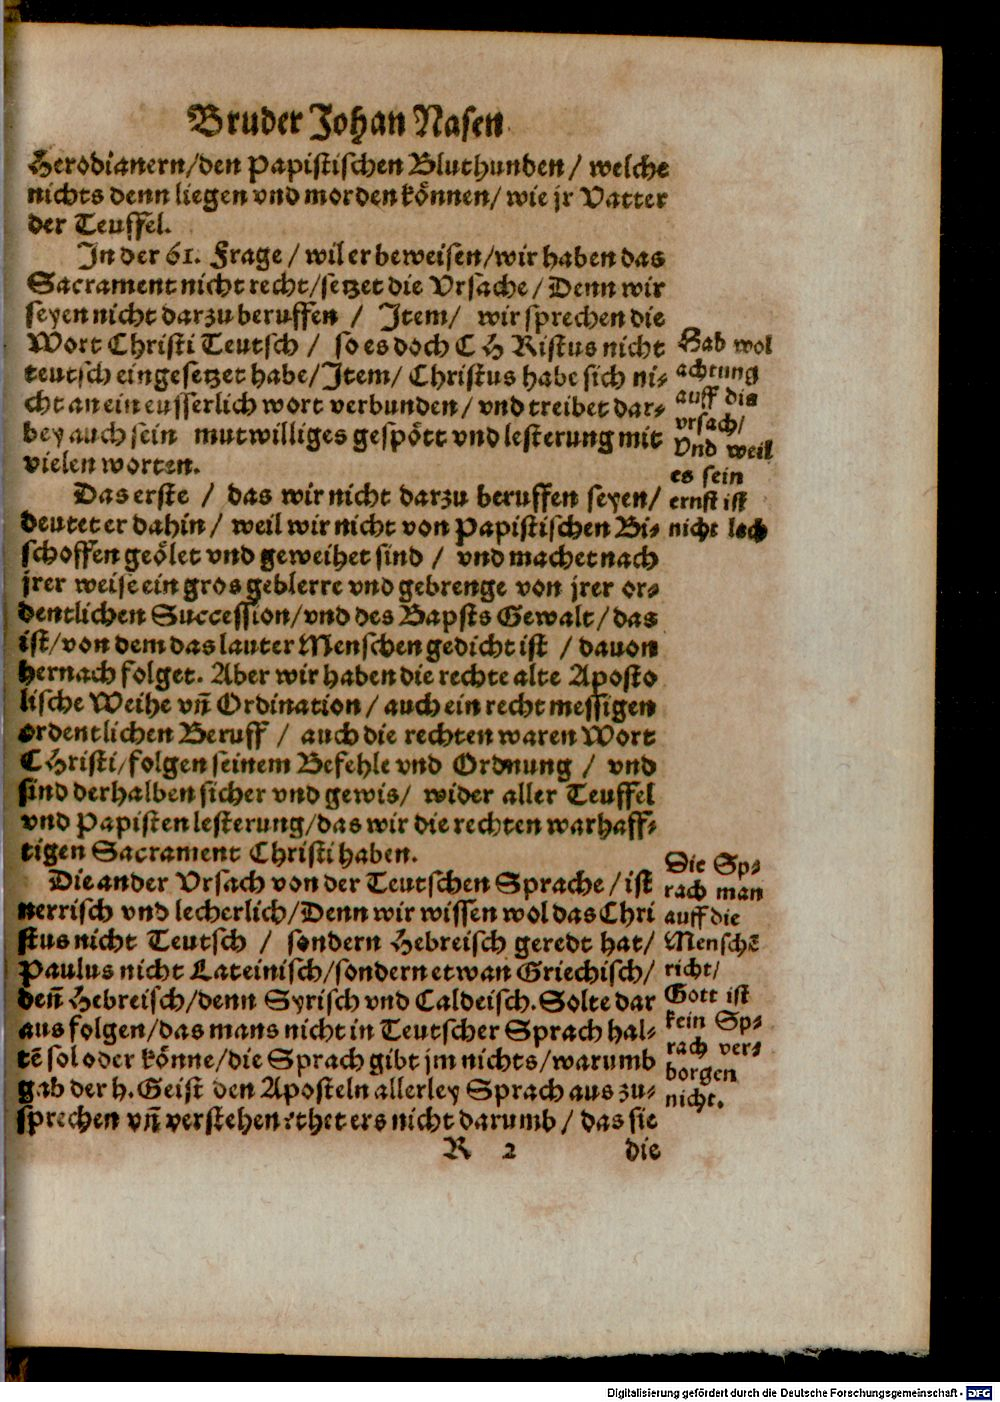 Bruder Johan Nasen
Herodianern/den Papistischen Bluthunden/ welche
nichts denn liegen vnd morden können/ wie jr Vatter
der Teuffel.
In der 61. Frage / wil er beweisen/wir haben das
Sacrament nicht recht/setzet die Vrsache/ Denn wir
seyen nicht darzu beruffen / Item/ wir sprechen die
Wort Christi Teutsch / so es doch CHRistus nicht
teutsch eingesetzet habe/Item/ Christus habe sich ni⸗
cht an ein eusserlich wort verbunden/ vnd treibet dar⸗
bey auch sein mutwilliges gespött vnd lesterung mit
vielen worten.
Hab wol
achtung
auff die
vrsach/
Vnd weil
es sein
ernst ist
nicht lach
Das erste / das wir nicht darzu beruffen seyen/
deutet er dahin/ weil wir nicht von Papistischen Bi⸗
schoffen geölet vnd geweihet sind / vnd machet nach
jrer weise ein gros geblerre vnd gebrenge von jrer or⸗
dentlichen Succession/vnd des Bapsts Gewalt/das
ist/von dem das lauter Menschen gedicht ist / dauon
hernach folget. Aber wir haben die rechte alte Aposto
lische Weihe vñ Ordination/ auch ein recht messigen
ordentlichen Beruff / auch die rechten waren Wort
CHristi/folgen seinem Befehle vnd Ordnung / vnd
sind derhalben sicher vnd gewis/ wider aller Teuffel
vnd Papisten lesterung/das wir die rechten warhaff⸗
tigen Sacrament Christi haben.
Die ander Vrsach von der Teutschen Sprache/ist
nerrisch vnd lecherlich/Denn wir wissen wol das Chri
stus nicht Teutsch / sondern Hebreisch geredt hat/
Paulus nicht Lateinisch/sondern etwan Griechisch/
deñ Hebreisch/denn Syrisch vnd Caldeisch. Solte dar
aus folgen/das mans nicht in Teutscher Sprach hal⸗
tē sol oder könne/die Sprach gibt jm nichts/warumb
gab der h. Geist den Aposteln allerley Sprach aus zu⸗
sprechen vñ verstehen: thet ers nicht darumb/ das sie
Die Sp⸗
rach man
auff die
Menschē
richt/
Gott ist
kein Sp⸗
rach ver⸗
borgen
nicht.
R 2 die
Digitalisierung gefördert durch die Deutsche Forschungsgemeinschaft - DFG